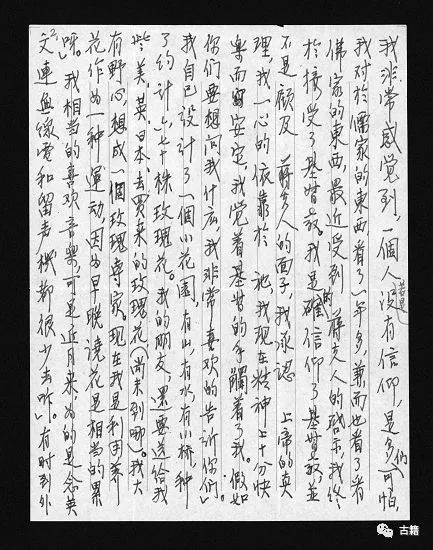 我非常感觉到,一個人若是没有信仰,是多们可怕,
我对於儒家的東西看了一年多,兼而也看了看
佛家的東西,最近受到蔣夫人的啓示,我終
於接受了基督教,我是的確信仰了基督教,並
不是顧及 蔣夫人的面子,我承認 上帝的真
理,我一心的依靠於 祂,我現在精神上十分快
樂而安定,我觉着基督的手觸着了我。假如
你们要想问我什庅,我非常喜欢的告訴你们」
我自己設计了一個小花園,有山,有水,有小桥,种
了約计六七十株玫瑰花。我的朋友,還要送给我
些,美,英,日本,去買来的玫瑰花(尚未到哪)。我大
有野心想成一個玫瑰專家,現在我是利用养
花作为一种運动,因为早晚澆花是相当的累
呀。我相当的喜欢音樂,可是近月来,为的是念英
文,連無線電和留声機都很少去听。有时到外
古籍